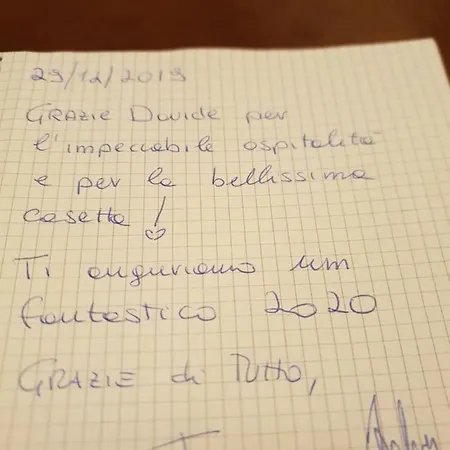 29/12/2019
GRAZIE Davide per
l'impeccabile ospitalità
e per la bellissima
casetta!
Ti auguriamo um
fantastico 2020
GRAZIE di TUTTO,